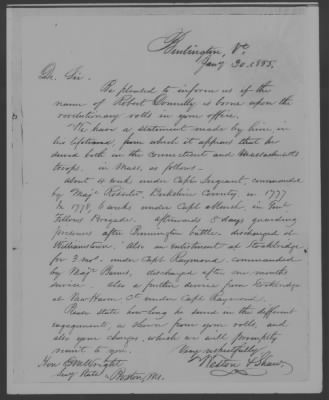 Burlington, Vt.
Jan'y 30. 1885.
Dr. Sir.
Be pleased to inform us if the
name of Robert Donnelly is borne upon the
revolutionary rolls in your office.
We have a statement made by him, in
his lifetime, from which it appears that he
served both in the Connecticut and Massachusetts
troops, in Mass. as follows.
About 4 weeks under Capt. Sergeant, commanded
by Maj. Berkshire County, in 1777
In 1778, 6 weeks under Capt. March, in Gen'l
Fellows Brigade. Afterwards 8 days guarding
prisoners after Bennington battle. discharged at
Williamstown. Also an enlistment at Stockbridge
for 3 mos. under Capt Raymond, commanded
by Maj. discharged after one months
service. Also a further service from Stockbridge
at New Haven Ct under Capt Raymond.
Please state how long he served in the different
engagements, as shown from your rolls, and
also your charges, which we will promptly
remit to you. Very respectfully
Weston & Shaw
Hon
Boston, Ms.